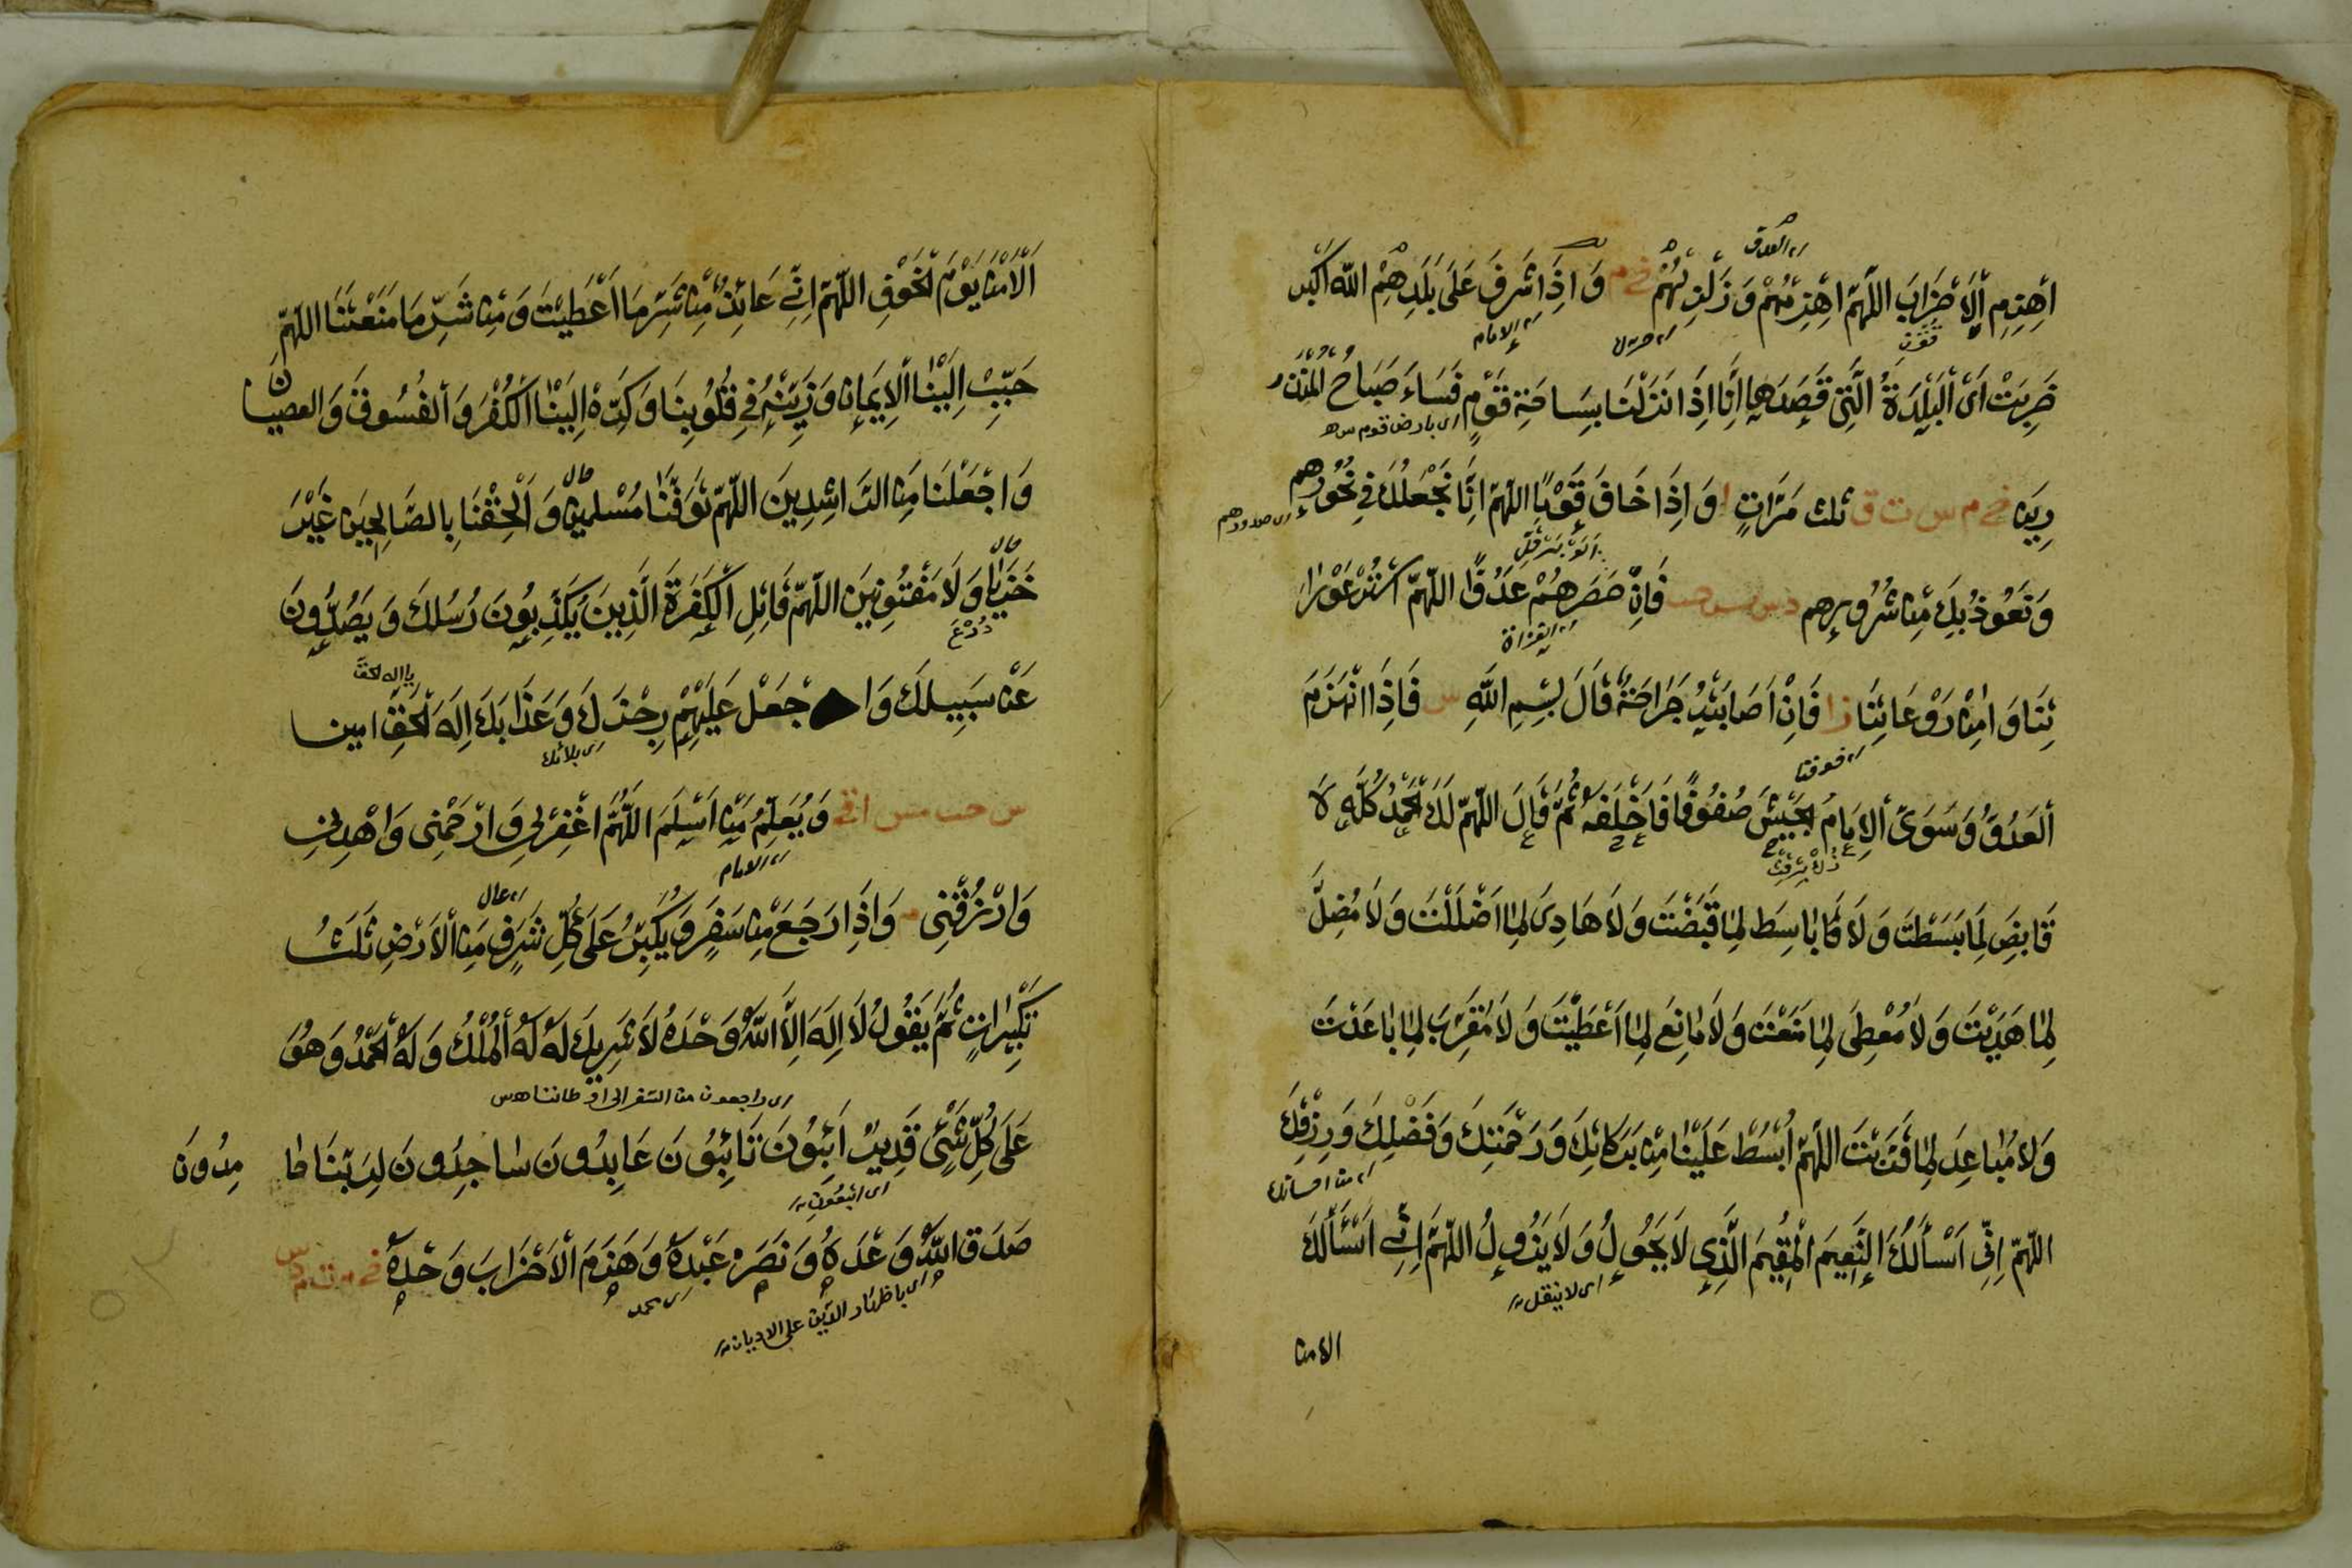 اهزم الاحزاب اللهم اهزمهم وزلزلهم خ م واذا اشرف على بلدهم الله اكبر
خربت اى البلدة التى قصدها انا اذا نزلنا بساحة قوم فساء صباح المنذ
اى بارض قوم
رين خ م س ت ق ثلث مرات واذا خاف قوما اللهم انا نجعلك فى نحورهم
اى صدورهم
ونعوذ بك من شرورهم د س حب فان حصرهم عدو اللهم استر عورا
تنا وامن روعاتنا ر ا فان اصابته جراحة قال بسم الله س فاذا انهزم
العدو وسوى الامام الجيش صفوفا فاخلفه ثم قال اللهم لك الحمد كله لا
قابض لما بسطت ولا باسط لما قبضت ولا هادى لما اضللت ولا مضل
لما هديت ولا معطى لما منعت ولا مانع لما اعطيت ولا مقرب لما باعدت
ولا مباعد لما قربت اللهم ابسط علينا من بركاتك ورحمتك وفضلك ورزقك
اللهم انى اسألك النعيم المقيم الذى لا يحول ولا يزول اللهم انى اسألك
اى لا ينتقل
الامن
الامن يوم الخوف اللهم انى عائذ من شر ما اعطيت ومن شر ما منعتنا اللهم
حبب الينا الايمان وزينه فى قلوبنا وكره الينا الكفر والفسوق والعصيان
واجعلنا من الراشدين اللهم توفنا مسلمين والحقنا بالصالحين غير
خزايا ولا مفتونين اللهم قاتل الكفرة الذين يكذبون رسلك ويصدون
يا اله الحق
عن سبيلك واجعل عليهم رجزك وعذابك اله الحق امين
س حب مس ويعلم من اسلم اللهم اغفرلى وارحمنى واهدنى
اى الامام
وارزقنى م واذا رجع من سفر ويكبر على كل شرف من الارض ثلث
تكبيرات ثم يقول لا اله الا الله وحده لا شريك له له الملك وله الحمد وهو
اى راجعون من السفر الى اوطاننا
على كل شئ قدير ائبون تائبون عابدون ساجدون لربنا حا مدون
صدق الله وعده ونصر عبده وهزم الاحزاب وحده خ م د ت س
اى محمد
اى باظهار الدين على الاديان